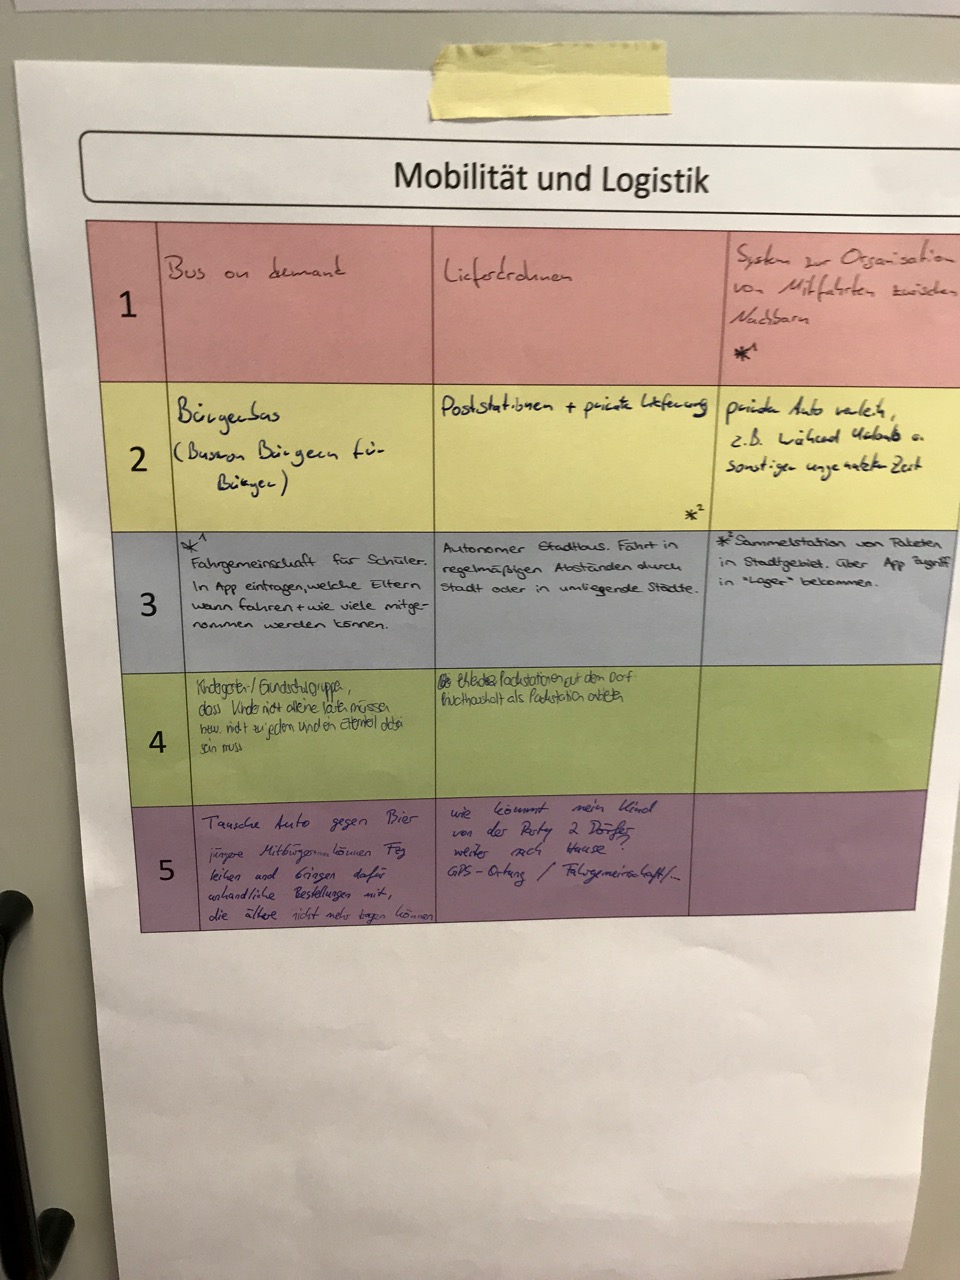 Mobilität und Logistik
1
Bus on demant
Lieferdrohnen
System zur Organisation
von Mitfahrten zwischen
Nachbarn
*1
2
Bürgerbus
(Bus von Bürgern für
Bürger)
Poststationen + private Lieferung
*2
privater Auto verleih,
z.B. während Urlaub o.
sonstiger ungenutzter Zeit
3
*1
Fahrgemeinschaft für Schüler.
In App eintragen, welche Eltern
wann fahren + wie viele mitge-
nommen werden können.
Autonomer Stadtbus. Fährt in
regelmäßigen Abständen durch
Stadt oder in umliegende Städte.
*2 Sammelstation von Paketen
in Stadtgebiet. Über App Zugriff
in "Lager" bekommen.
4
Kindergarten-/Grundschulgruppe,
dass Kinder nicht alleine laufen müssen
bzw. nicht zu jedem Kind ein Elternteil dabei
sein muss
Packstationen auf dem Dorf
Privathaushalt als Packstation anbieten
5
Tausche Auto gegen Bier
jüngere Mitbürger können Fzg
leihen und bringen dafür
unhandliche Bestellungen mit,
die ältere nicht mehr tragen können
wie kommt mein Kind
von der Party 2 Dörfer
weiter nach Hause?
GPS-Ortung / Fahrgemeinschaft/...